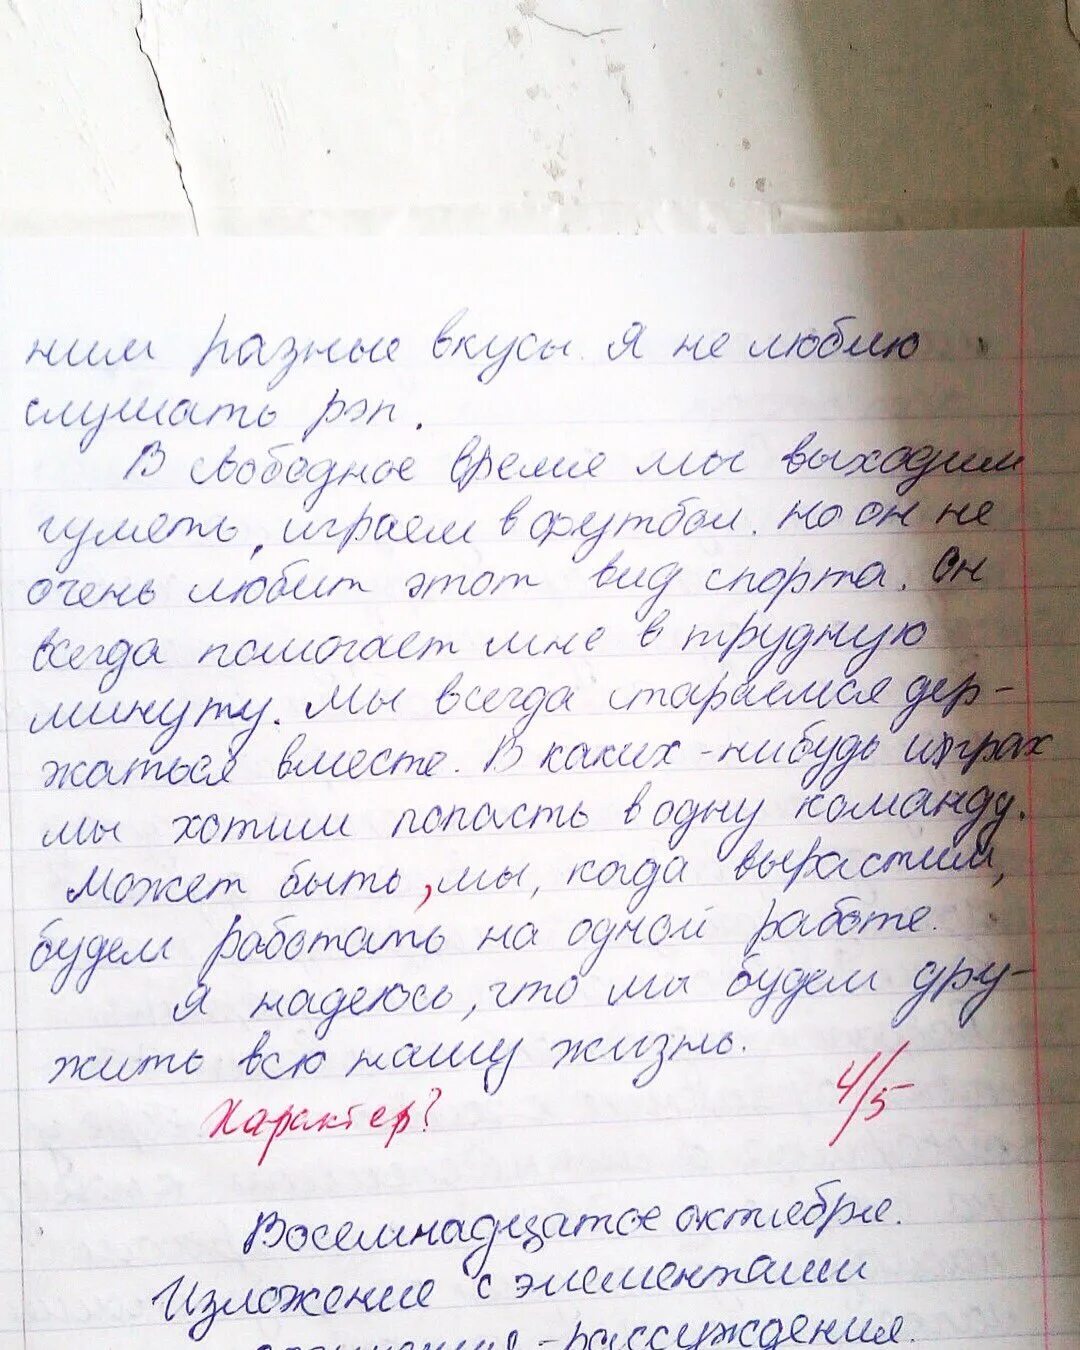 ним разные вкусы. Я не люблю
слушать рэп.
В свободное время мы выходим
гулять, играем в футбол. Но он не
очень любит этот вид спорта. Он
всегда помогает мне в трудную
минуту. Мы всегда стараемся дер-
жаться вместе. В каких-нибудь играх
мы хотим попасть в одну команду.
Может быть, мы, когда вырастим,
будем работать на одной работе.
Я надеюсь, что мы будем дру-
жить всю нашу жизнь.
Характер? 4/5
Восемнадцатое октября.
Изложение с элементами
-рассуждения.